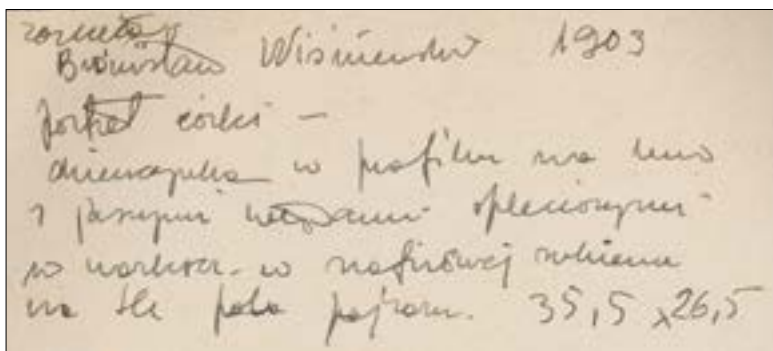 Bronisław Wiśniewski 1903
portret córki —
dziewczynka w profilu na lewo
z jasnymi włosami splecionymi
w warkocz. w szafirowej sukience
na tle pola pejzażu. 35,5 x 26,5